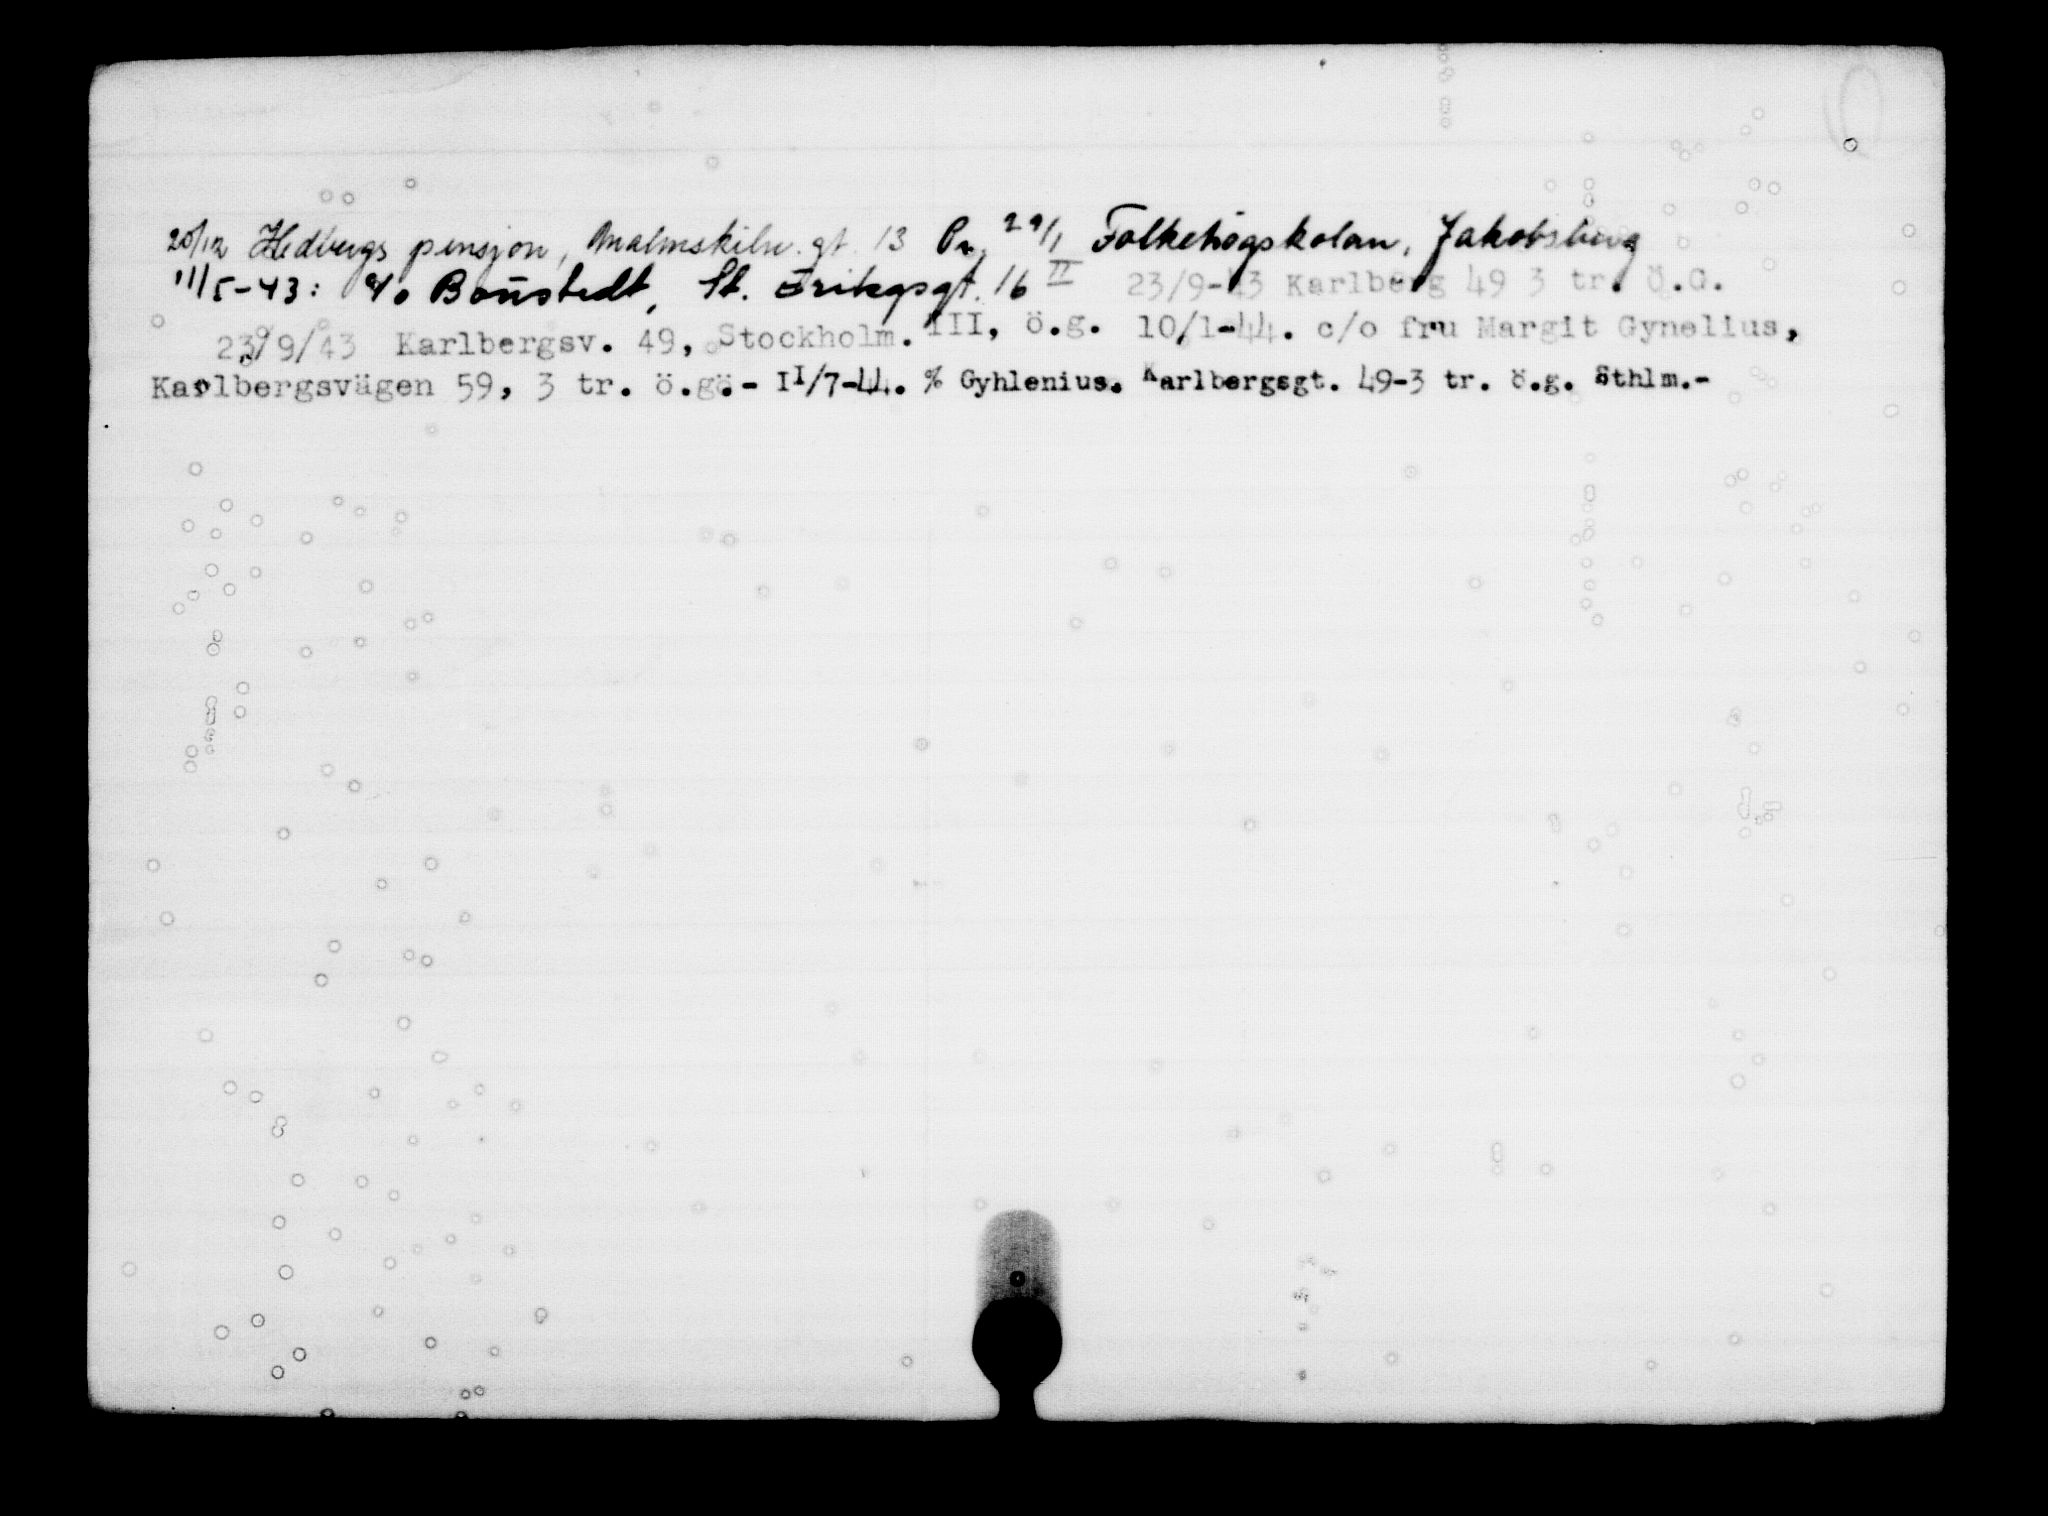 20/12 Hedbergs pensjon, Malmskiln. gt. 13 Pr. 29/1 Folkehögskolan, Jakobsberg
11/5-43: c/o Boustedt, St. Eriksgt. 16 II 23/9-43 Karlberg 49 3 tr. Ö.G.
23/9/43 Karlbergsv. 49, Stockholm. III, ö.g. 10/1-44. c/o fru Margit Gynelius,
Karlbergsvägen 59, 3 tr. ö.gö.- II/7-44. % Gyhlenius. Karlbergsgt. 49-3 tr. ö.g. Sthlm.-